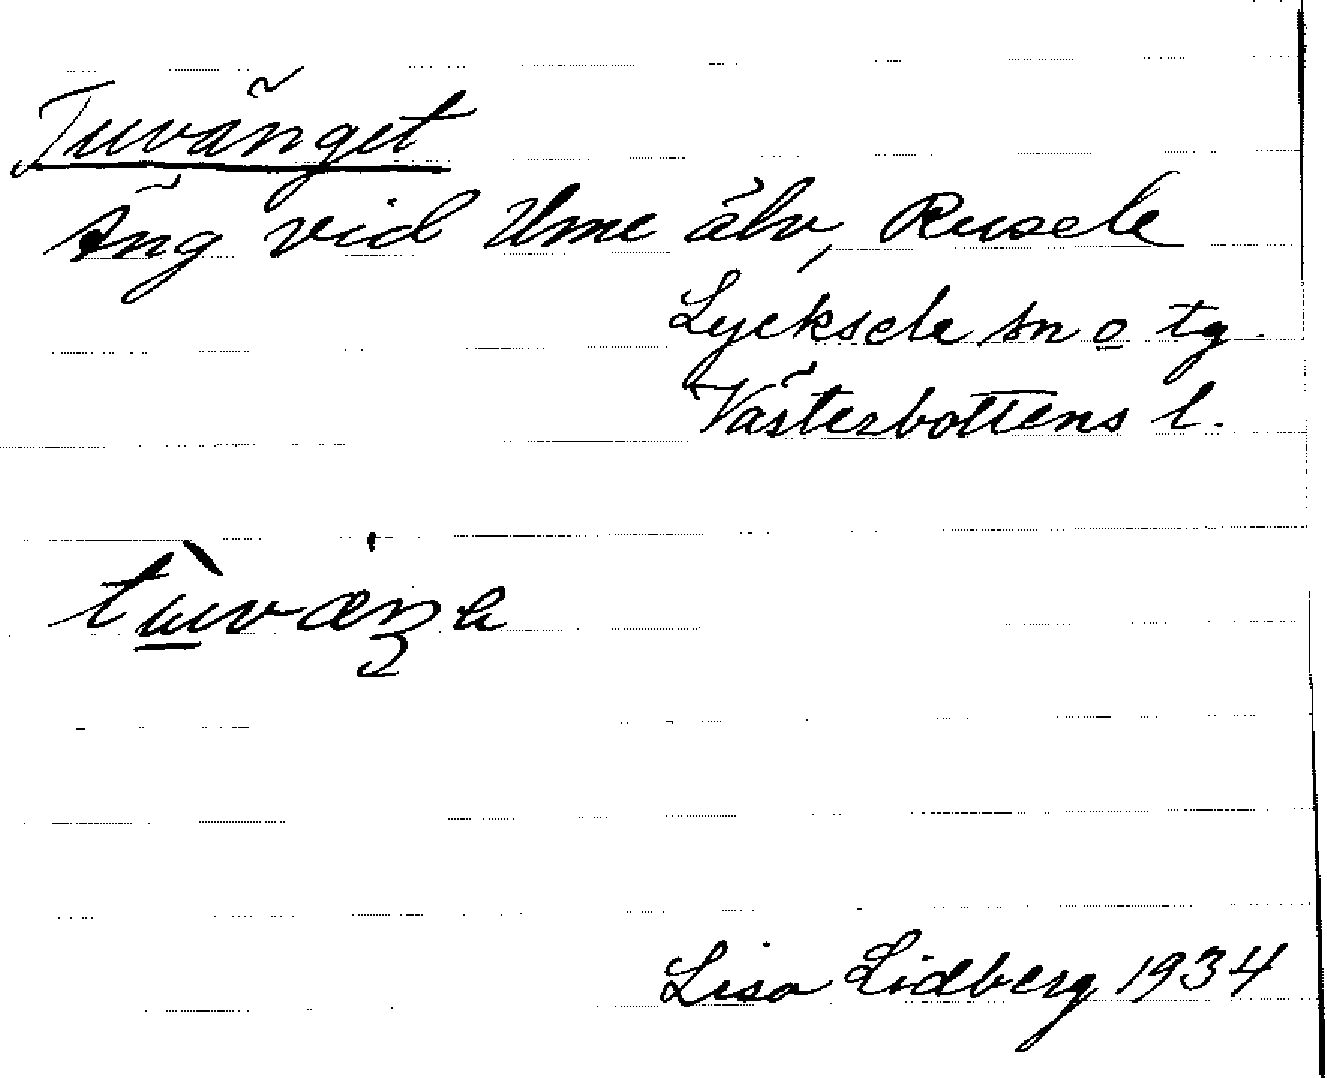 Tuvänget
Äng vid Ume älv, Rusele
Lycksele sn o tg.
Västerbottens l.
Lisa Lidberg 1934